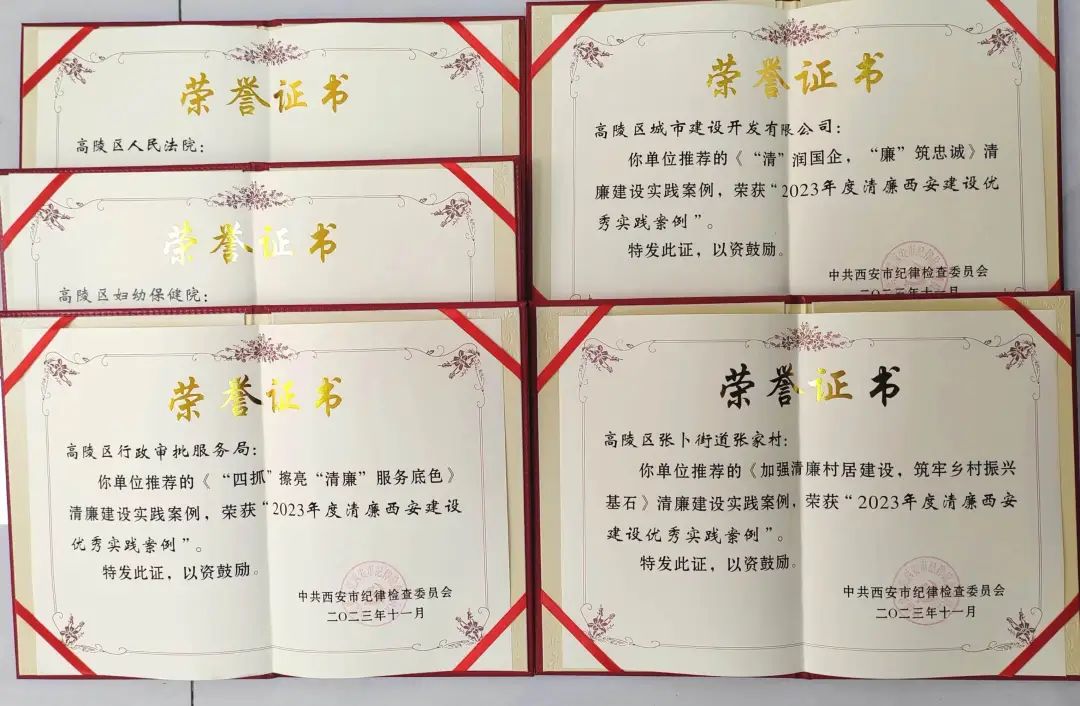 荣誉证书
高陵区人民法院：
荣誉证书
高陵区妇幼保健院：
荣誉证书
高陵区行政审批服务局：
你单位推荐的《“四抓”擦亮“清廉”服务底色》
清廉建设实践案例，荣获“2023年度清廉西安建设
优秀实践案例”。
特发此证，以资鼓励。
中共西安市纪律检查委员会
二〇二三年十一月
荣誉证书
高陵区城市建设开发有限公司：
你单位推荐的《“清”润国企，“廉”筑忠诚》清
廉建设实践案例，荣获“2023年度清廉西安建设优
秀实践案例”。
特发此证，以资鼓励。
中共西安市纪律检查委员会
二〇二三年十一月
荣誉证书
高陵区张卜街道张家村：
你单位推荐的《加强清廉村居建设，筑牢乡村振兴
基石》清廉建设实践案例，荣获“2023年度清廉西安
建设优秀实践案例”。
特发此证，以资鼓励。
中共西安市纪律检查委员会
二〇二三年十一月